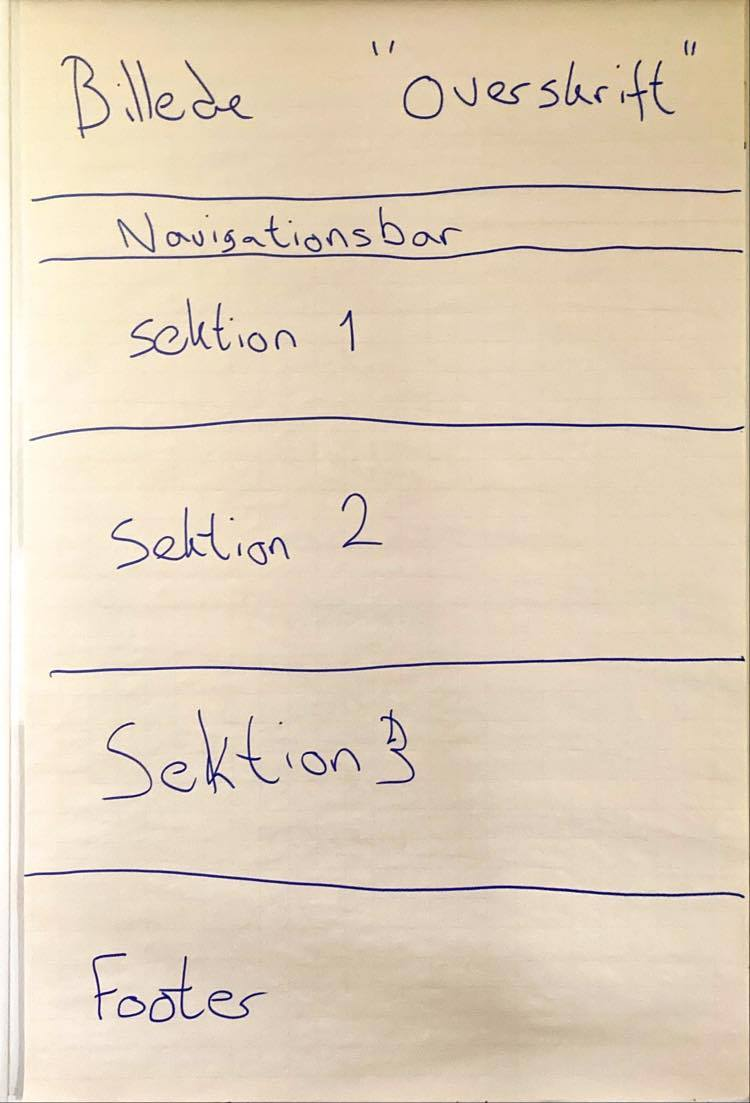 Billede "Overskrift"
Navigationsbar
Sektion 1
Sektion 2
Sektion 3
Footer